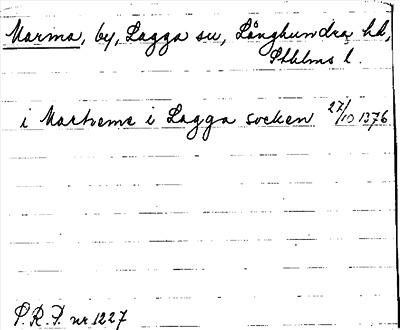 Marma, by, Lagga sn, Långhundra hd,
Sthlms l.
i Markeme i Lagga socken 27/10 1376
P.R.F. nr 1227